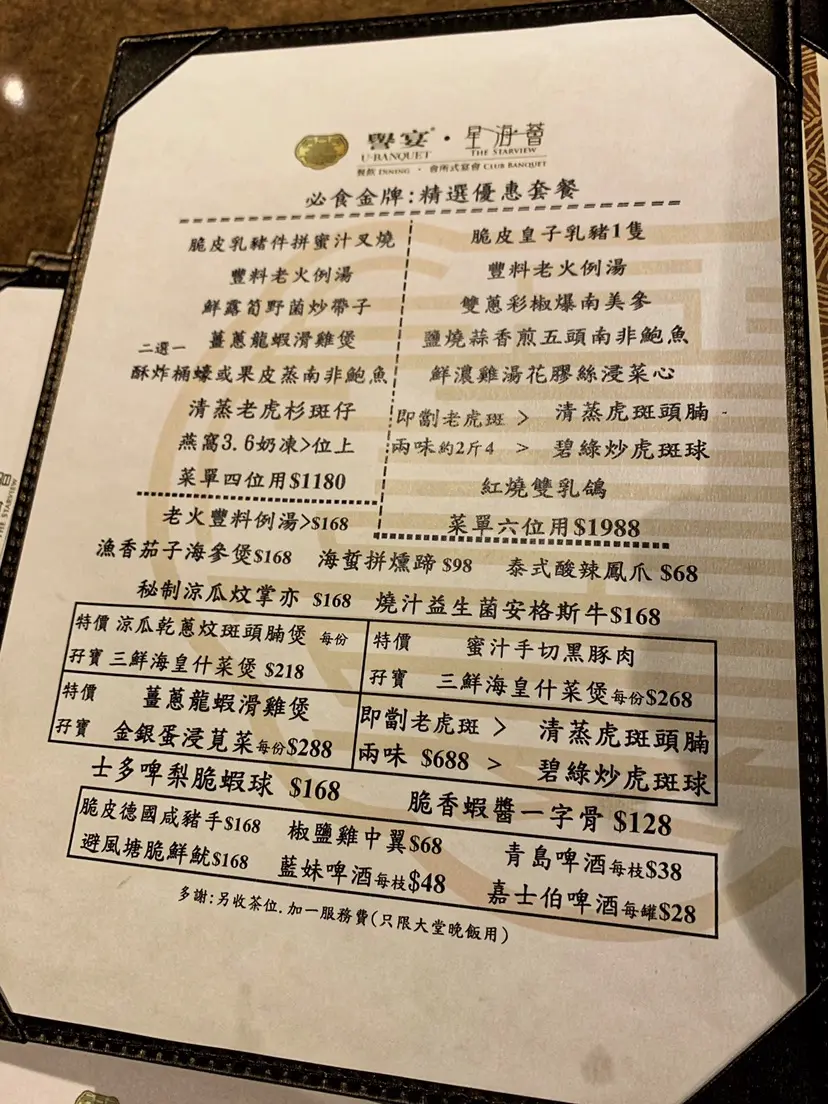 譽宴®・星海薈
U-BANQUET THE STARVIEW
餐飲 DINNING ・ 會所式宴會 CLUB BANQUET
必食金牌:精選優惠套餐
脆皮乳豬件拼蜜汁叉燒
豐料老火例湯
鮮露筍野菌炒帶子
薑蔥龍蝦滑雞煲
二選一
酥炸桶蠔或果皮蒸南非鮑魚
清蒸老虎杉斑仔
燕窩3.6奶凍>位上
菜單四位用$1180
脆皮皇子乳豬1隻
豐料老火例湯
雙蔥彩椒爆南美參
鹽燒蒜香煎五頭南非鮑魚
鮮濃雞湯花膠絲浸菜心
即劏老虎斑 > 清蒸虎斑頭腩
兩味約2斤4 > 碧綠炒虎斑球
紅燒雙乳鴿
菜單六位用$1988
老火豐料例湯>$168
漁香茄子海參煲$168 海蜇拼燻蹄 $98 泰式酸辣鳳爪 $68
秘制涼瓜炆掌亦 $168 燒汁益生菌安格斯牛$168
特價 涼瓜乾蔥炆斑頭腩煲 每份
孖寶 三鮮海皇什菜煲 $218
特價 蜜汁手切黑豚肉
孖寶 三鮮海皇什菜煲每份$268
特價 薑蔥龍蝦滑雞煲
孖寶 金銀蛋浸莧菜每份$288
即劏老虎斑 > 清蒸虎斑頭腩
兩味 $688 > 碧綠炒虎斑球
士多啤梨脆蝦球 $168 脆香蝦醬一字骨 $128
脆皮德國咸豬手$168 椒鹽雞中翼$68 青島啤酒每枝$38
避風塘脆鮮魷$168 藍妹啤酒每枝$48 嘉士伯啤酒每罐$28
多謝:另收茶位.加一服務費(只限大堂晚飯用)
THE STARVIEW